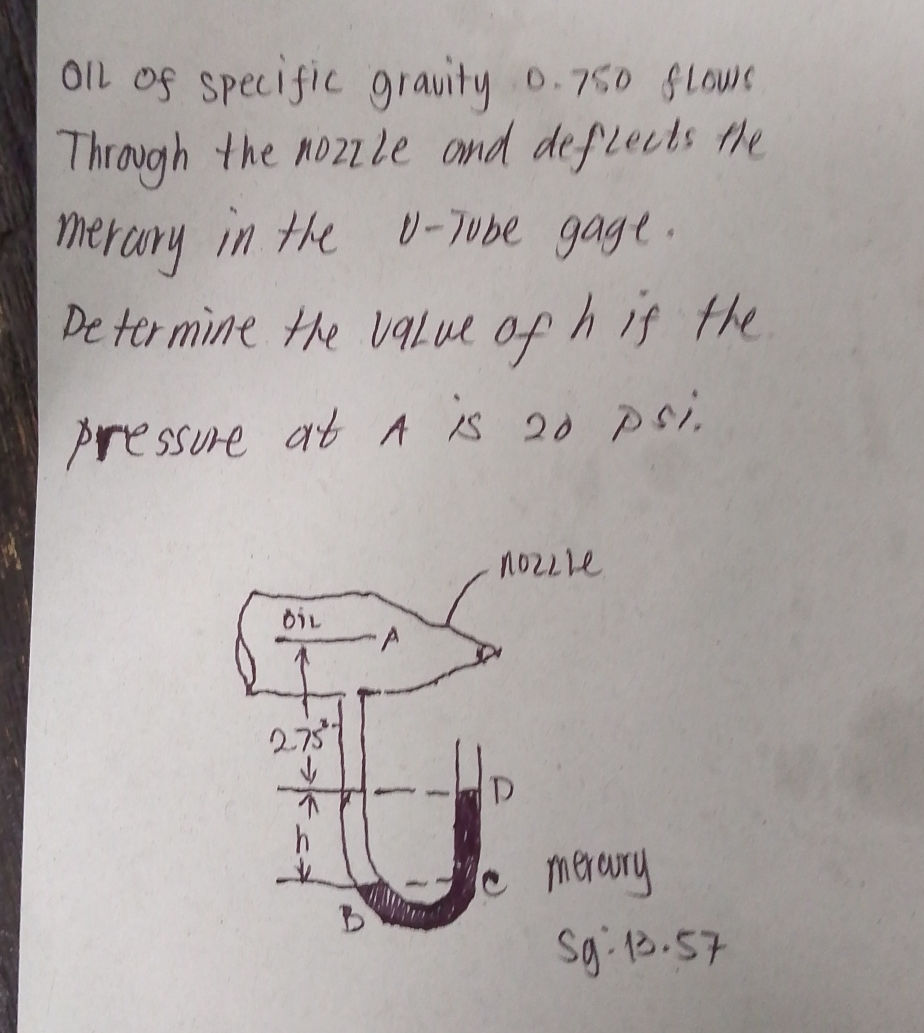 OIL of specific gravity 0.750 flows
Through the nozzle and deflects the
mercury in the U-Tube gage.
Determine the value of h if the
pressure at A is 20 psi.
nozzle
OIL
A
2.75'
D
h
C
mercury
B
Sg: 13.57